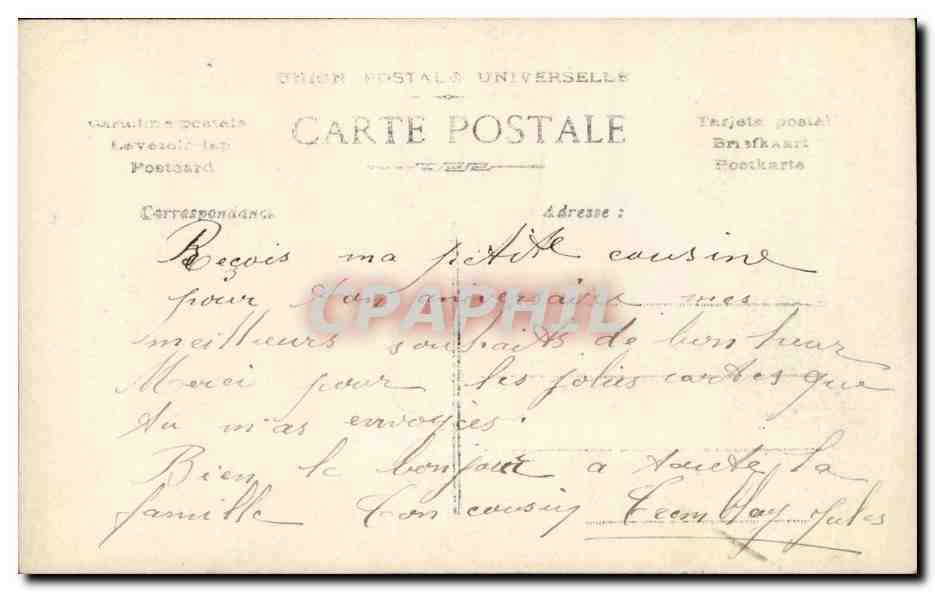 UNION POSTALE UNIVERSELLE
CARTE POSTALE
Tarjeta postal
Briefkaart
Postcard
Postkarte
Correspondance
Adresse :
Reçois ma petite cousine
pour ton aniversaire mes
CPAPHIL
meilleurs souhaits de bonheur
Merci pour les jolies cartes que
tu m'as envoyées.
Bien le bonjour a toute la
famille Ton cousin Tremblay Jules